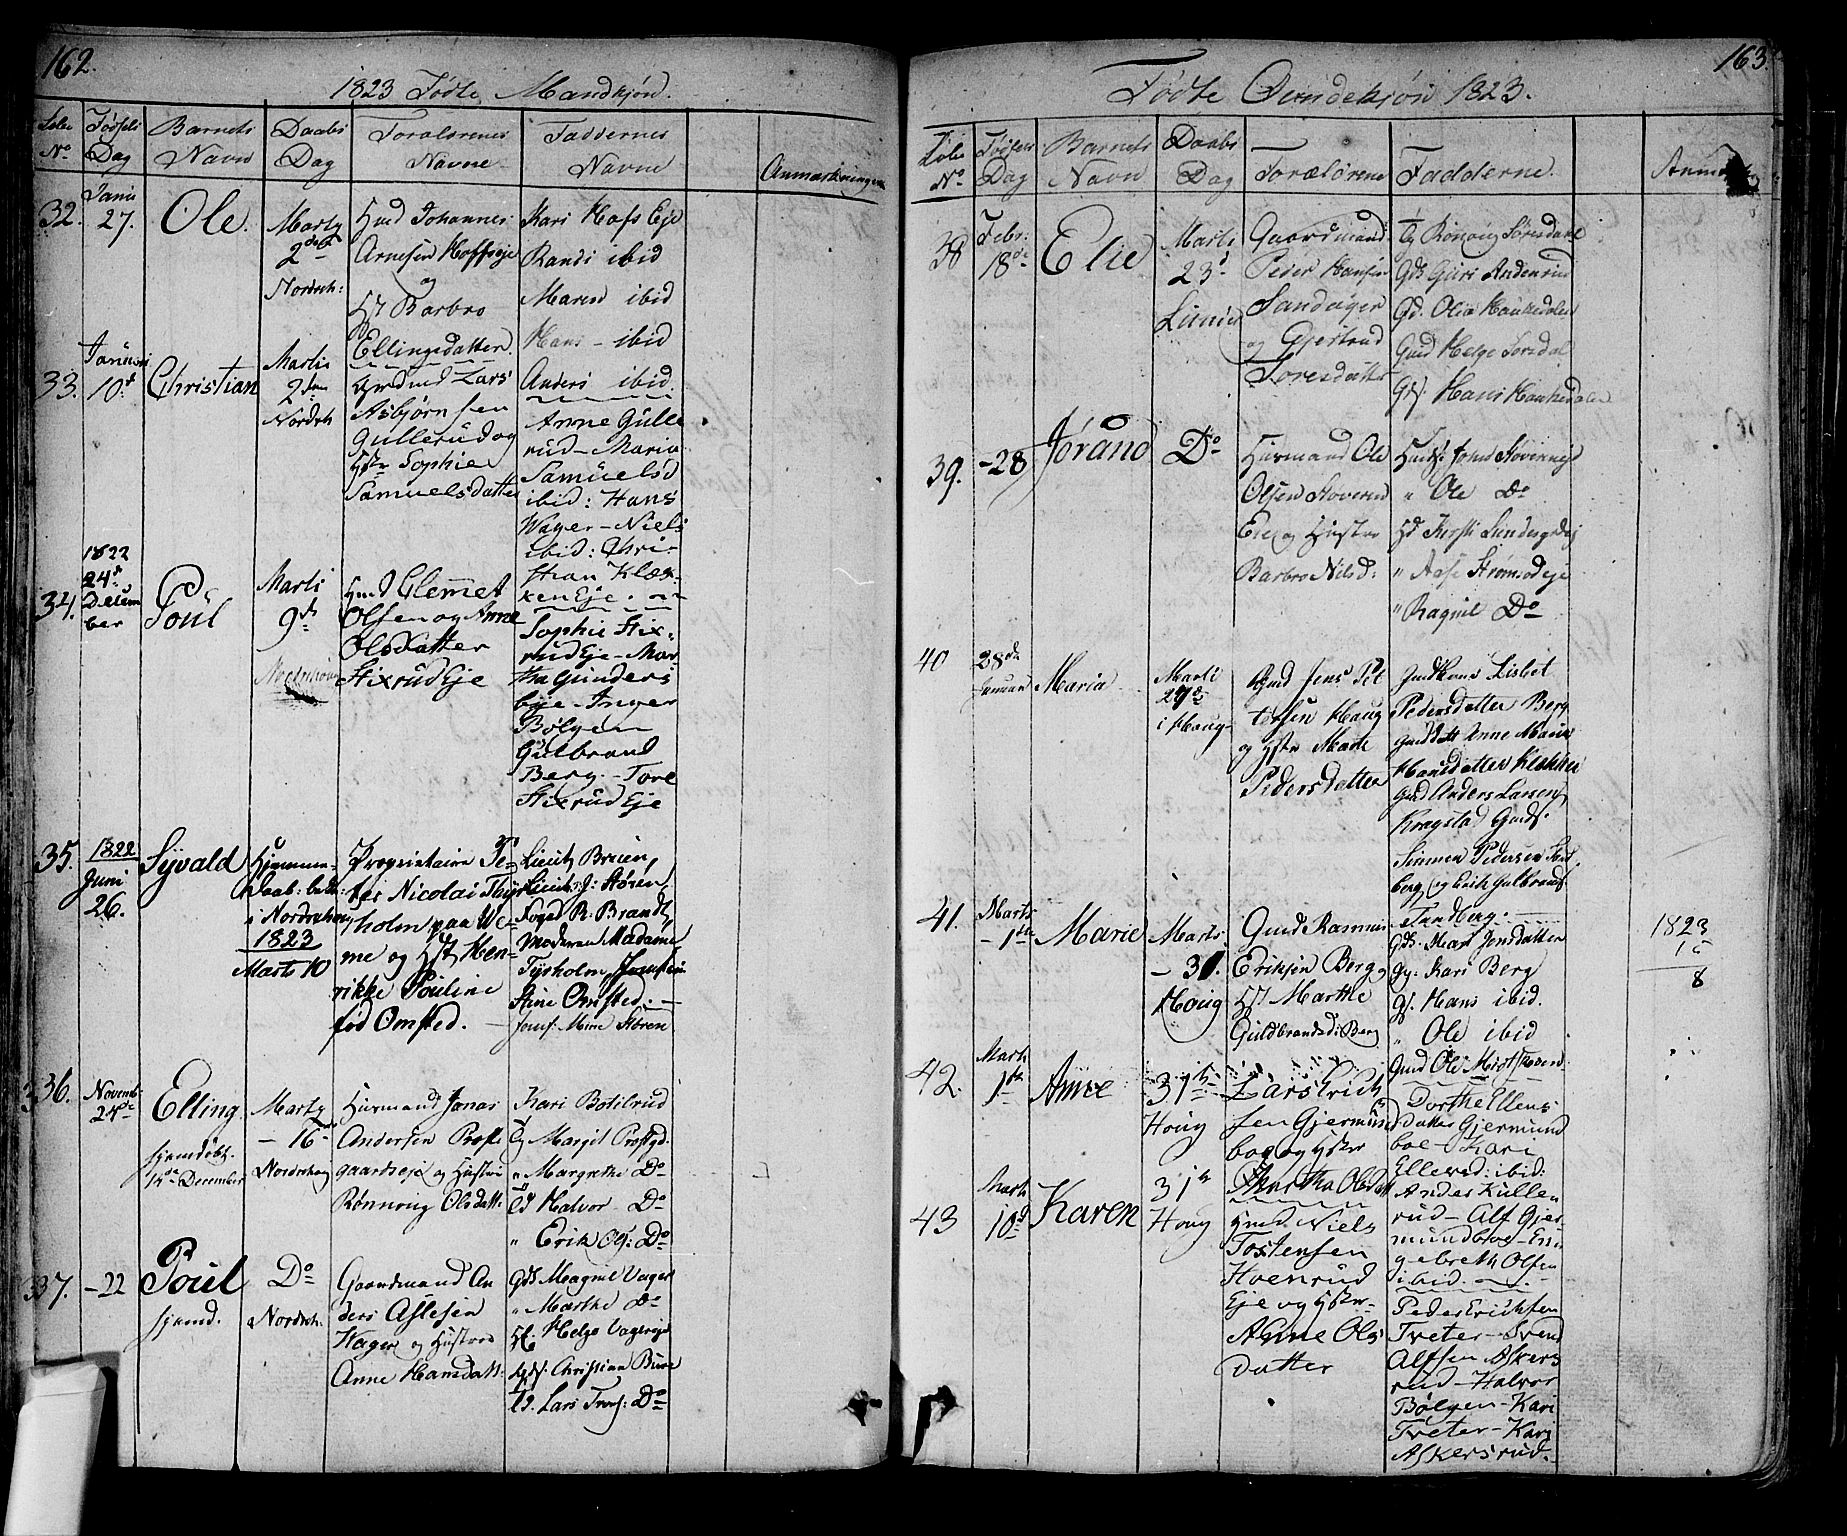 162.
1823 Födte Mandkjön.
Löbe No.
Födsels Dag
Barnets Navn
Daabs Dag
Forældrenes Navne
Faddernes Navne
Anmærkninger
32.
Janu 27.
Ole.
Marts 2den
Nordreh:
Huusmd Johannes
Arnesen Hoffseje
og
Hst Barbro
Ellingsdatter.
Kari Hofs Eje
Randi ibid
Maren ibid
Hans - ibid
Anders ibid.
33.
Januari 10d
Christian
Martii
2den
Nordreh
Lars
Asbjörnsen
Gullerud og
Hstr Sophie
Samuelsdatter
Anne Gulle
rud - Maria
Samuelsd
ibid: Hans
Wager - Niels
ibid: Chri-
stian Klæk-
ken Eje.
34.
1822
24d
Decem
ber
Poul
Marti
9de
Hmd Clemmet
Olsen og Anne
Olsdatter
Stixrud Eje
Sophie Stix-
rud Eje - Mar-
tha Gunders
bye - Inger
Bölgen
Gulbrand
Berg. - Tore
Stixrud Eje
35.
1822
Juni
26.
Syvald
Hjemme-
Daab: bekr:
i Nordrehoug
1823
Marts 10
Proprietaire Pe-
ter Nicolai Thyr
holm paa We-
me og Hst Hen-
rikke Pouline
föd Omsted.
Lieutn Bruen,
Lieutn J: Stören,
Foged R. Brandt,
Moderen Madame
Tyrholm, Jomfru
Stine Omsted. -
Jomf: Mine Stören
36.
Novemb
24de
Elling.
hjemdöbt.
15de December
Marty
- 16de
Nordrehoug
Huusmand Jonas
Andersen Proste
gaardseje og Hustru
Rönnoug Olsdatt:
Kari Botilrud
Margit Prostgd.
" Margrethe Do
Halvor - Do
" Erik Ols: Do
37.
- 22
Poul
hjemd.
Do
Nordreh.
Gaardmand An
ders Aslesen
Wager og Hustru
Anne Hansdatt:
Gds Magnil Vager
" Marthe Do
H. Helge Vagerseje
Christian Bure
Lars Do
163.
Födte Qvindekjön 1823.
Löbe No.
Födsels Dag
Barnets Navn
Daabs Dag
Forældrene
Fadderne.
38
Febr:
18de
Elie
Marts
23d
Lunder
Gaardmand
Peder Hansen
Sandager
og Gjertrud
Toresdatter
Rönoug Sörsdal
Gds Guri Anderud
Gd. Olia Haakedalen
Gmd Helge Sörsdal
Hans Haakedalen
39.
- 28
Jörand
Do
Huusmand Ole
Olsen Stoverud
Eie og Hustru
Barbro Nilsd:
John
" Ole Do
Kersti
" Aase Strömsodeje
" Ragnil Do
40
28de
Januar
Maria
Marti
27de
i Houg
Gmd Jens Pet
tersen Haug
og Hstr Marte
Pedersdatter
Gmdkone Lisbet
Pedersdatter Berg
Gmd datt Anne Marie
Hansdatter Klekken
Gmd Anders Larsen
Kragstad Gmds.
Simmen Pedersen
berg, og Erik Gulbrands.
Tandberg.
41.
Marts
- 1ste
Marie
Marts
- 31.
Houg
Gmd Rasmus
Eriksen Berg
Hst Marthe
Guldbrandsd: Berg
Mari Jonsdatter
Kari Berg
Hans ibid.
" Ole ibid
Gmd Ole
1823
15
8
42.
Marts
1ste
Anne
31te
Houg
Lars Erich
sen Gjermund
boe og Hstr
Martha Olsdatt
Dorthe Ellens
Datter Gjermund
boe - Kari
Ellevsd: ibid:
Anders Kullen
rud - Alf Gjer-
mundboe - En
gebreth Olsen
ibid.
43
Marts
10d
Karen
31te
Houg
Hmd Niels
Tostensen
Hvenrud
Eje og Hstr
Anne Ols
Datter
Peder Eriksen
Treter - Svend
Alfsen Askers
rud - Halvor
Bölgen - Kari
Treter - Kari
Askersrud.